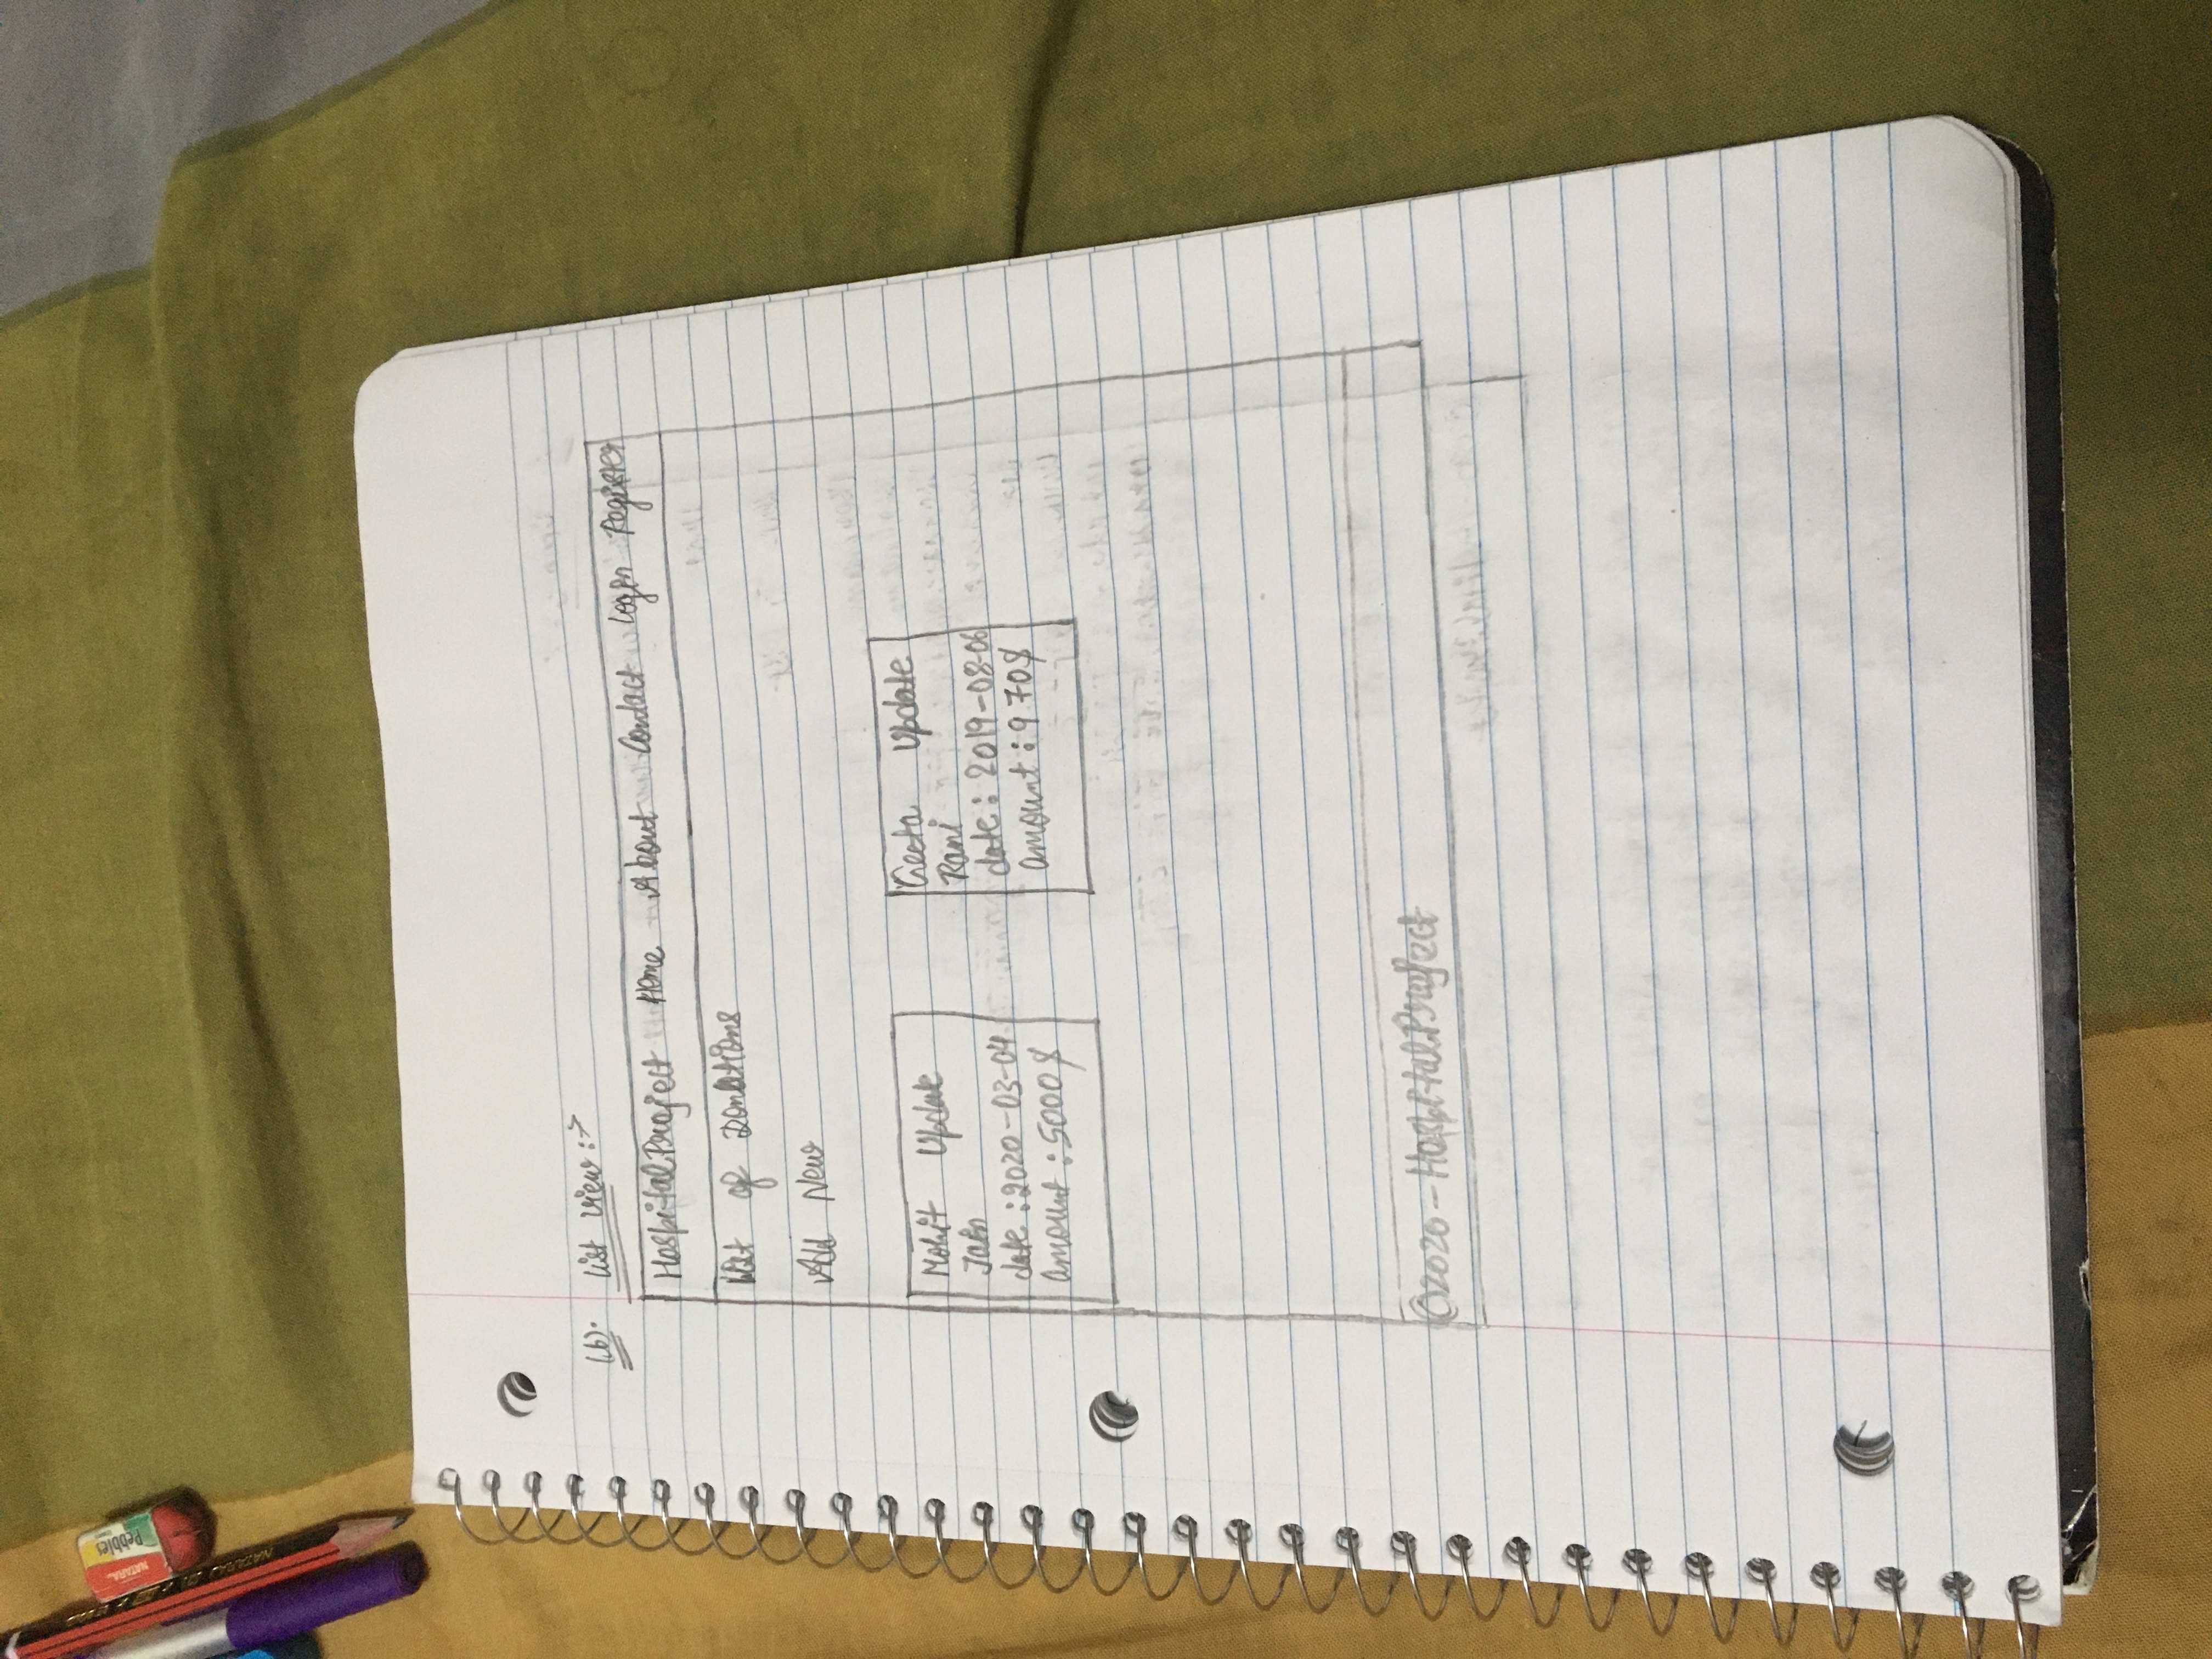 NATARAJ
Pebbles
(b). list view :->
HospitalProject Home About Contact Login Register
List of Donations
Add New
Mohit Update
Jain
date : 2020-03-04
amount : 5000$
Geeta Update
Rani
date : 2019-08-06
amount : 970$
©2020-HospitalProject